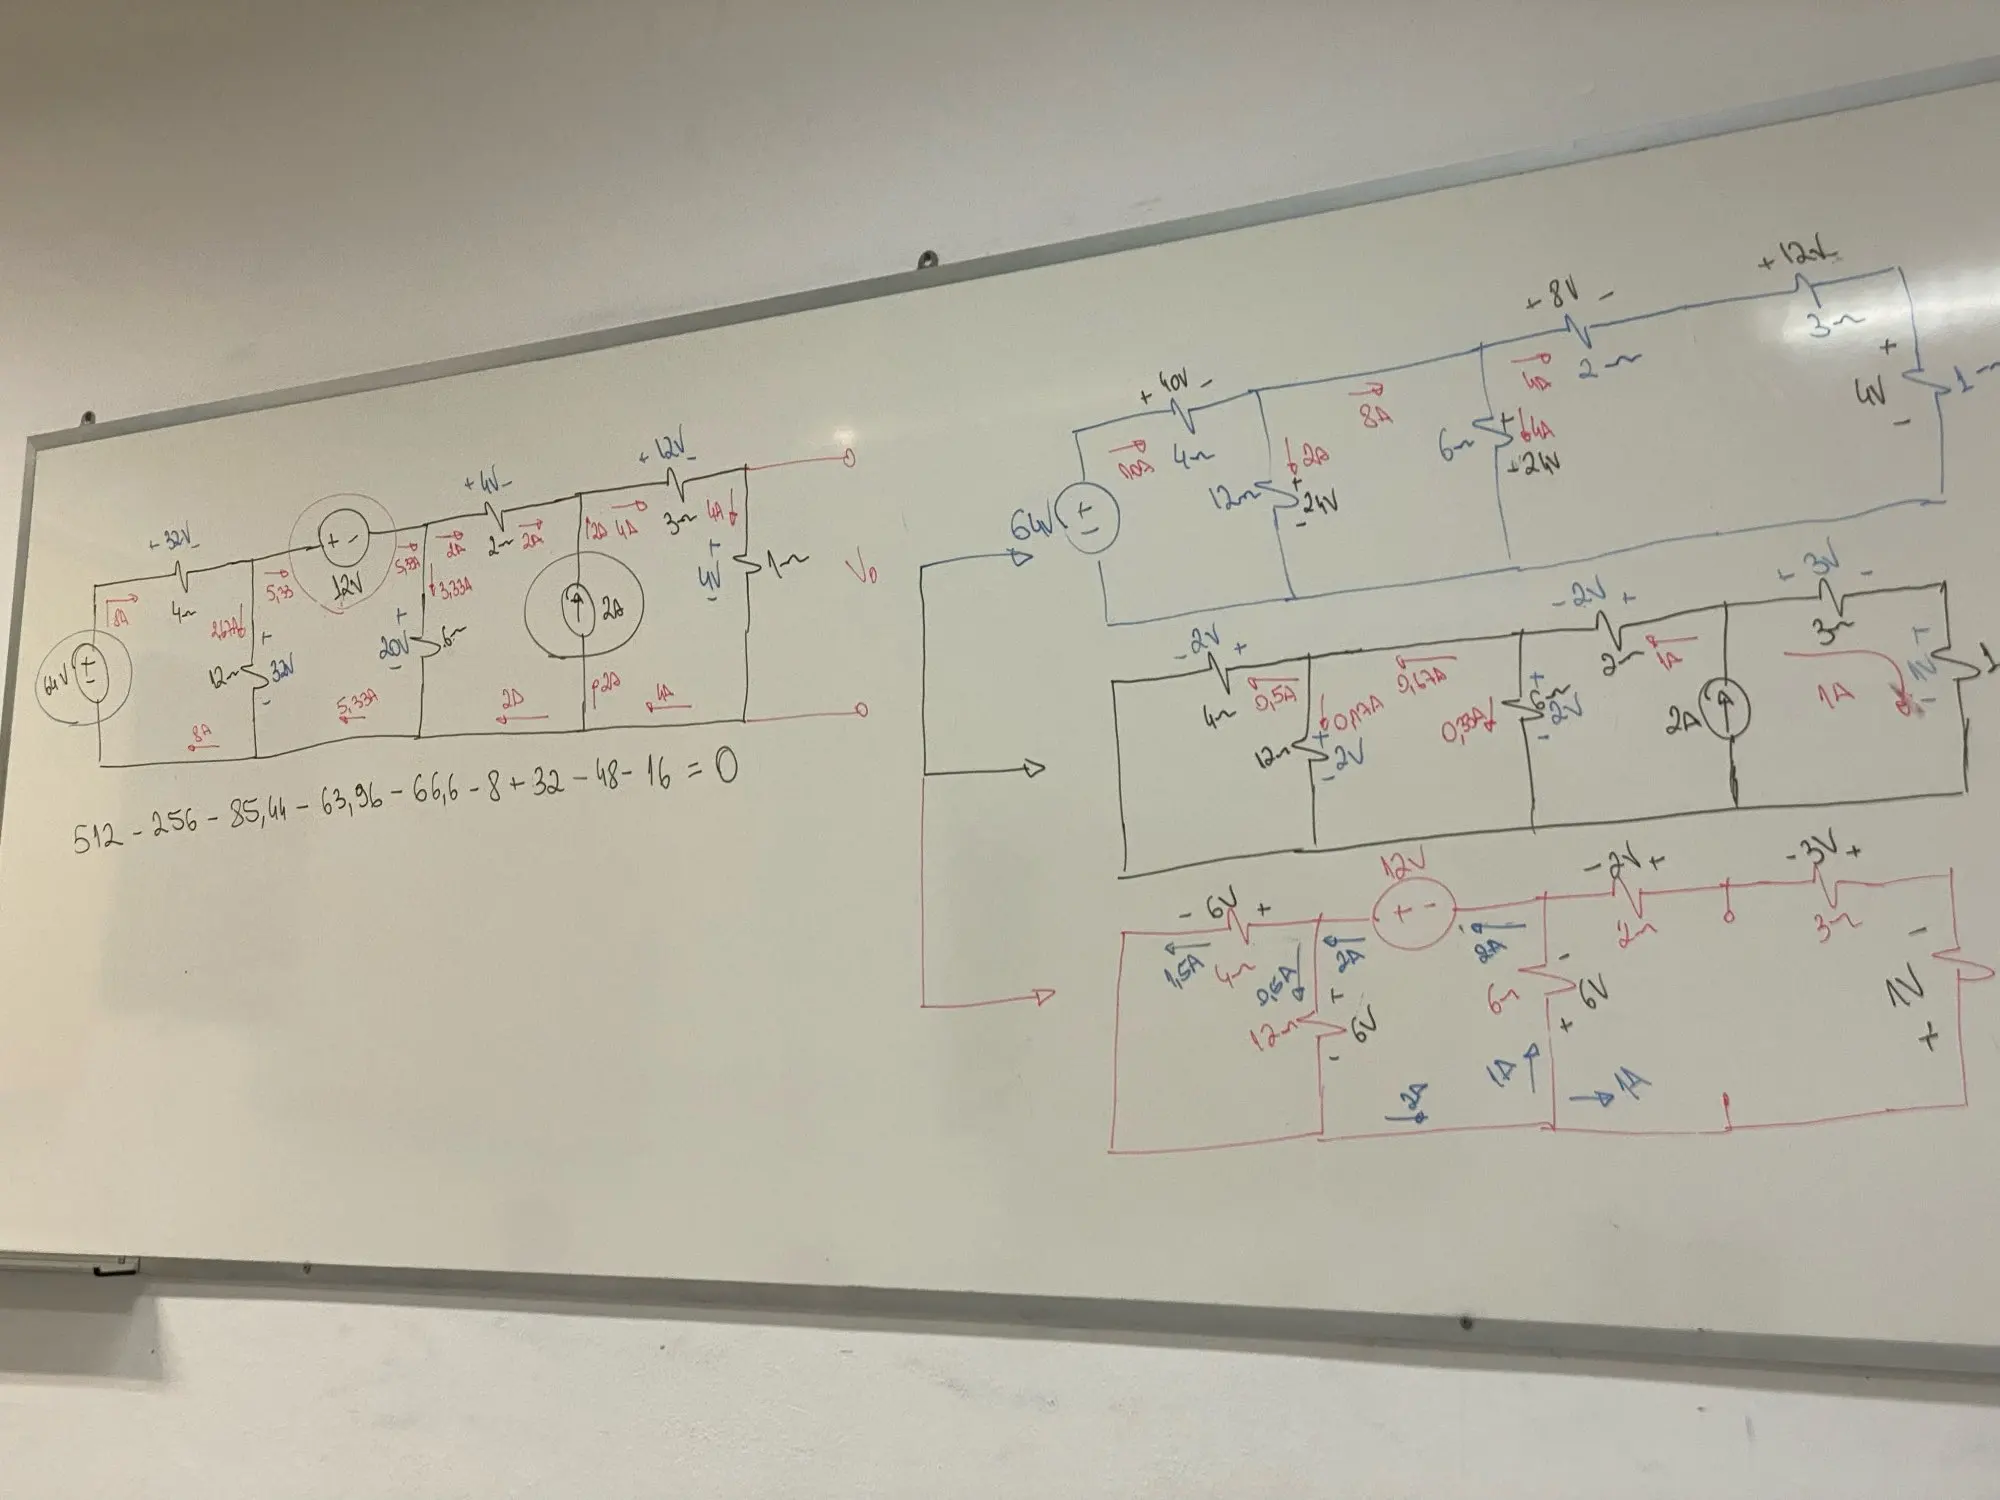 64V
+ -
8A
+ 32V -
4Ω
2,67A
12Ω
+
32V
-
5,33
+ -
12V
5,33A
2A
3,33A
+
20V
-
6Ω
+ 4V -
2Ω
2A
2A
4A
2A
+ 12V -
3Ω
4A
+
4V
-
1Ω
V0
8A
5,33A
2A
2A
4A
512 - 256 - 85,44 - 63,96 - 66,6 - 8 + 32 - 48 - 16 = 0
64V
+
-
+ 40V -
10A
4Ω
2A
12Ω
+
24V
-
8A
6Ω
+
4A
+ 24V
4A
+ 8V -
2Ω
+ 12V -
3Ω
+
4V
-
1Ω
- 2V +
4Ω
0,5A
0,17A
12Ω
+
2V
-
0,67A
0,33A
+
6Ω
2V
-
- 2V +
2Ω
1A
2A
+ 3V -
3Ω
1A
+
1V
-
1
- 6V +
1,5A
4Ω
0,5A
12Ω
+
6V
-
2A
12V
+ -
2A
6Ω
-
6V
+
1A
1A
2A
- 2V +
2Ω
- 3V +
3Ω
-
1V
+